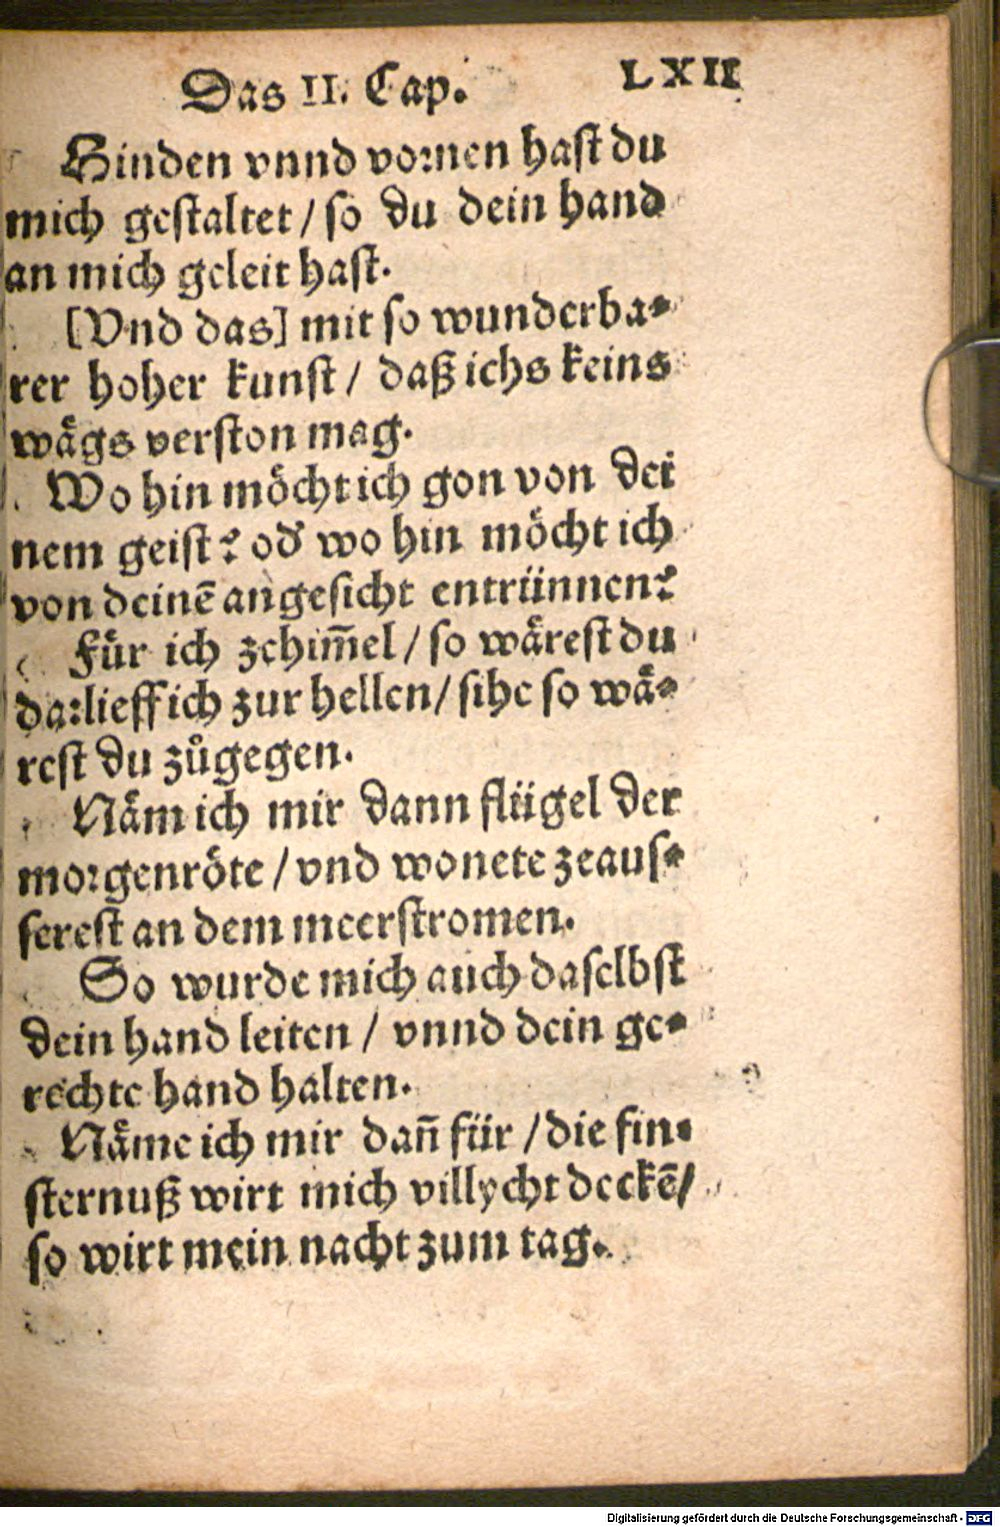 Das II. Cap. LXII
Hinden vnnd vornen hast du
mich gestaltet / so du dein hand
an mich geleit hast.
[Vnd das] mit so wunderba⸗
rer hoher kunst / daß ichs keins
wägs verston mag.
Wo hin möcht ich gon von dei
nem geist? od' wo hin möcht ich
von deinē angesicht entrünnen?
Fůr ich zehim̄el / so wärest du
da: lieff ich zur hellen / sihe so wä⸗
rest du zůgegen.
Näm ich mir dann flügel der
morgenröte / vnd wonete zeaus⸗
serest an dem meerstromen.
So wurde mich auch daselbst
dein hand leiten / vnnd dein ge⸗
rechte hand halten.
Näme ich mir dañ für / die fin⸗
sternuß wirt mich villycht deckē /
so wirt mein nacht zum tag.
Digitalisierung gefördert durch die Deutsche Forschungsgemeinschaft - DFG